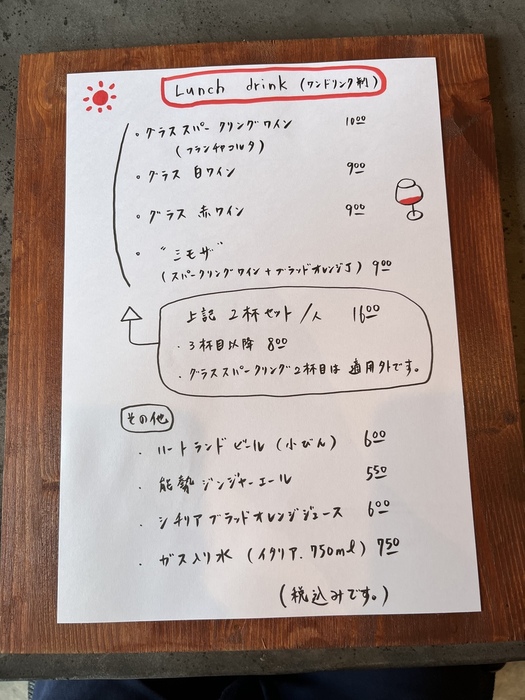 Lunch drink (ワンドリンク制)
・グラススパークリングワイン 1000
(フランチャコルタ)
・グラス 白ワイン 900
・グラス 赤ワイン 900
・"ミモザ"
(スパークリングワイン+ブラッドオレンジJ) 900
上記 2杯セット/人 1600
・3杯目以降 800
・グラススパークリング2杯目は適用外です。
その他
・ハートランドビール(小びん) 600
・能勢ジンジャーエール 550
・シチリアブラッドオレンジジュース 600
・ガス入り水(イタリア.750ml) 750
(税込みです。)